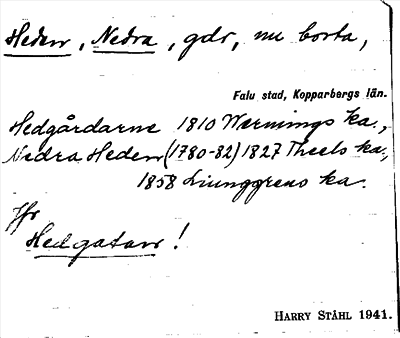 Heden, Nedra, gdr, nu borta,
Falu stad, Kopparbergs län.
Hedgårdarne 1810 Wernings ka.,
Nedra Heden (1780-82) 1827 Theels ka.,
1858 Ljunggrens ka.
Jfr
Hedgatan!
HARRY STÅHL 1941.